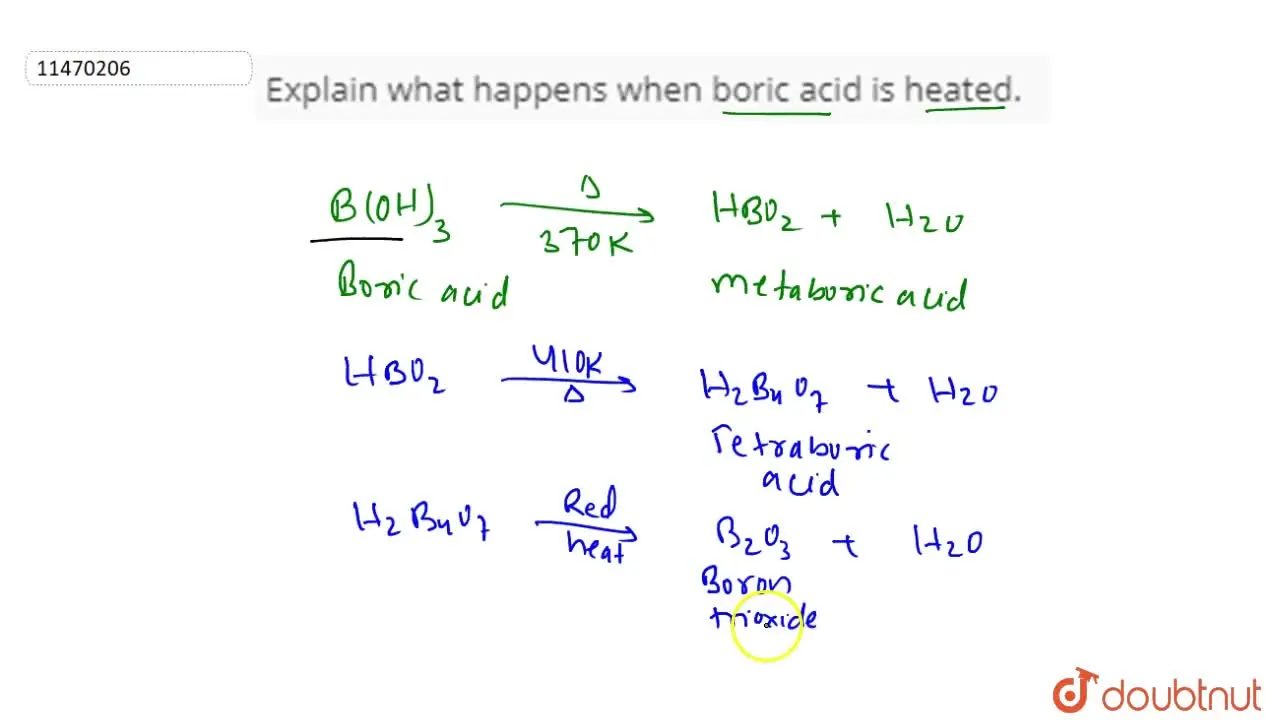 11470206
Explain what happens when boric acid is heated.
B(OH)₃ →Δ 370K HBO₂ + H₂O
Boric acid metaboric acid
HBO₂ →410K Δ H₂B₄O₇ + H₂O
Tetraboric
acid
H₂B₄O₇ →Red heat B₂O₃ + H₂O
Boron
trioxide
doubtnut